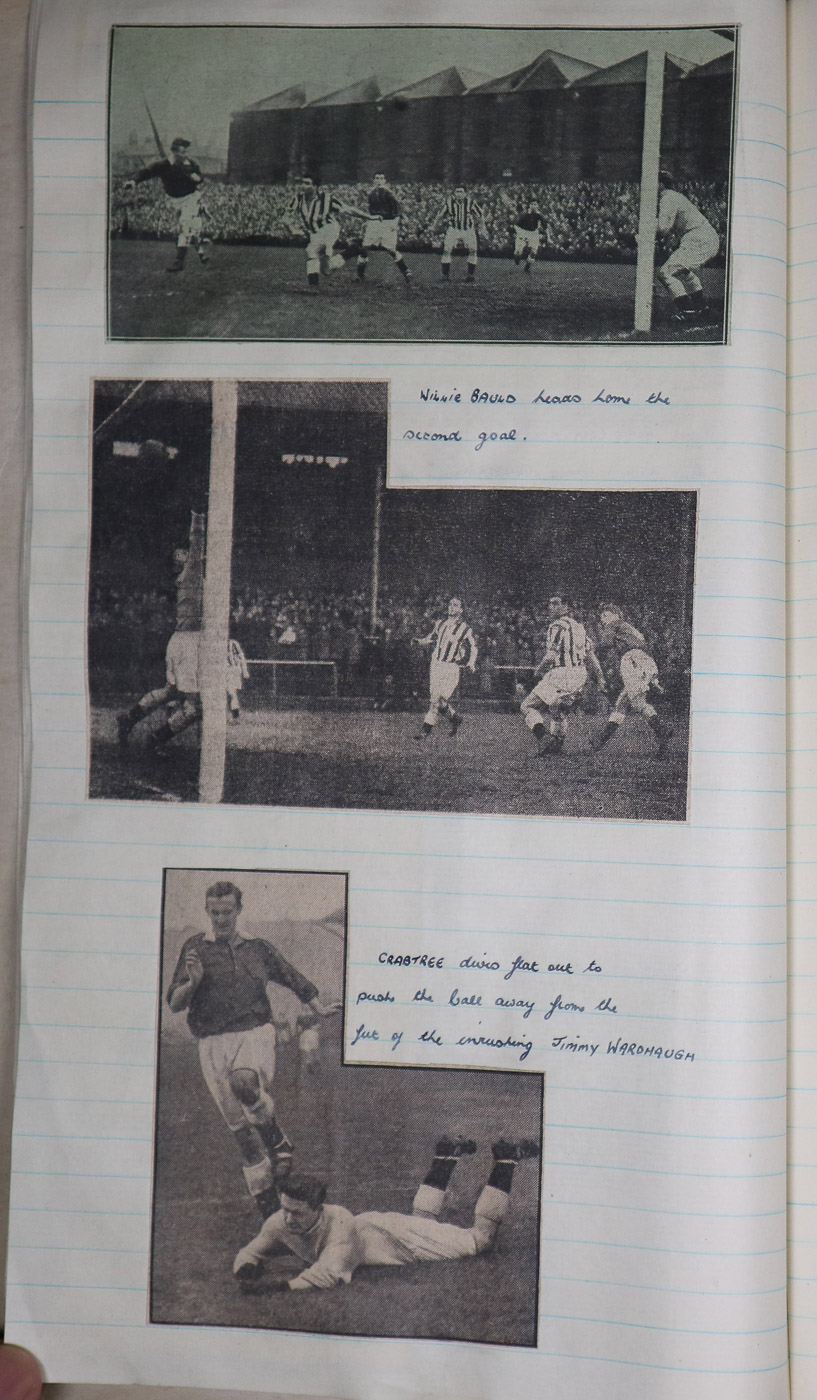 Willie BAULD heads home the
second goal.
CRABTREE dives flat out to
push the ball away from the
feet of the inrushing Jimmy WARDHAUGH